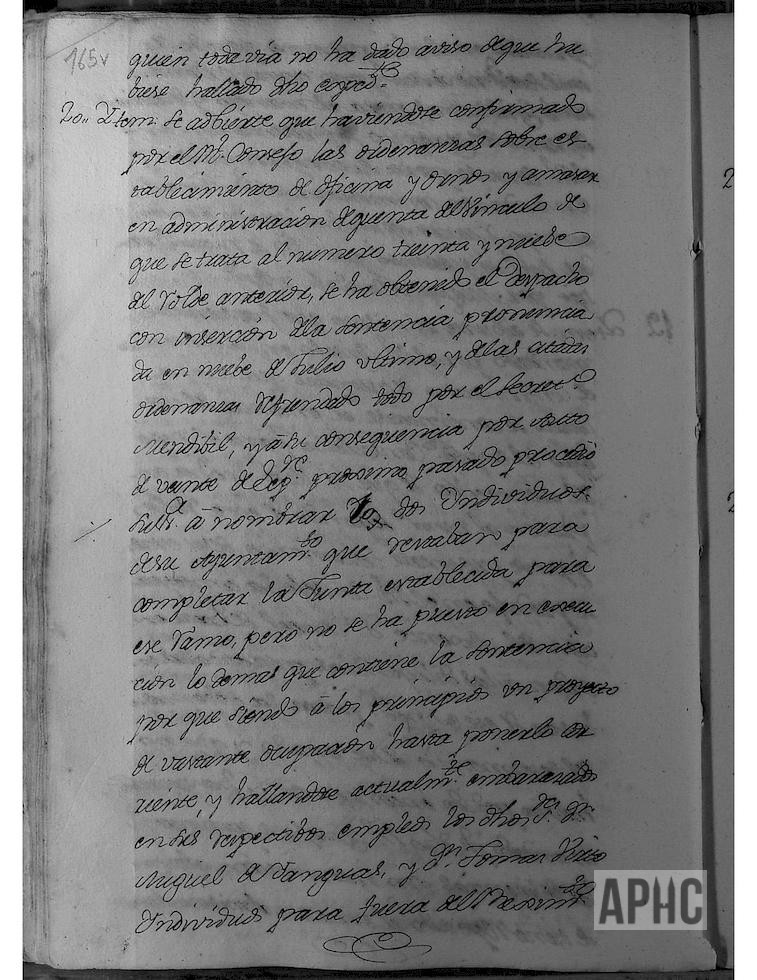 165v
quien toda via no ha dado aviso de que hu
biese hallado dho exped.te
20.. Ytem: se adbierte que haviendose confirmado
por el R.l Consejo las ordenanzas sobre es
tablecimiento de oficina y ornos y amasar
en administracion de quenta del Vinculo de
que se trata al numero treinta y nuebe
del rolde anterior, se ha obtenido el Despacho
con inserción dela sentencia pronuncia
da en nuebe de Julio ultimo, y delas citadas
ordenanzas refrendado todo por el Secret.o
Mendibil, y á su consequencia por auto
de veinte de Sep.re proximo pasado procedió
su S.a á nombrar los dos Yndividuos
desu Ayuntam.to que restaban para
completar la Junta establecida para
ese ramo, pero no se ha puesto en execu
cion lo demas que contiene la sentencia
por que siendo á los principios un proyecto
de vastante ocupación hasta ponerlo cor
riente, y hallandose actualm.te embarazados
en sus respectibos empleos los dhos S.res D.n
Miguel de Yanguas, y D.n Tomas
Yndividuos para fuera del
APHC